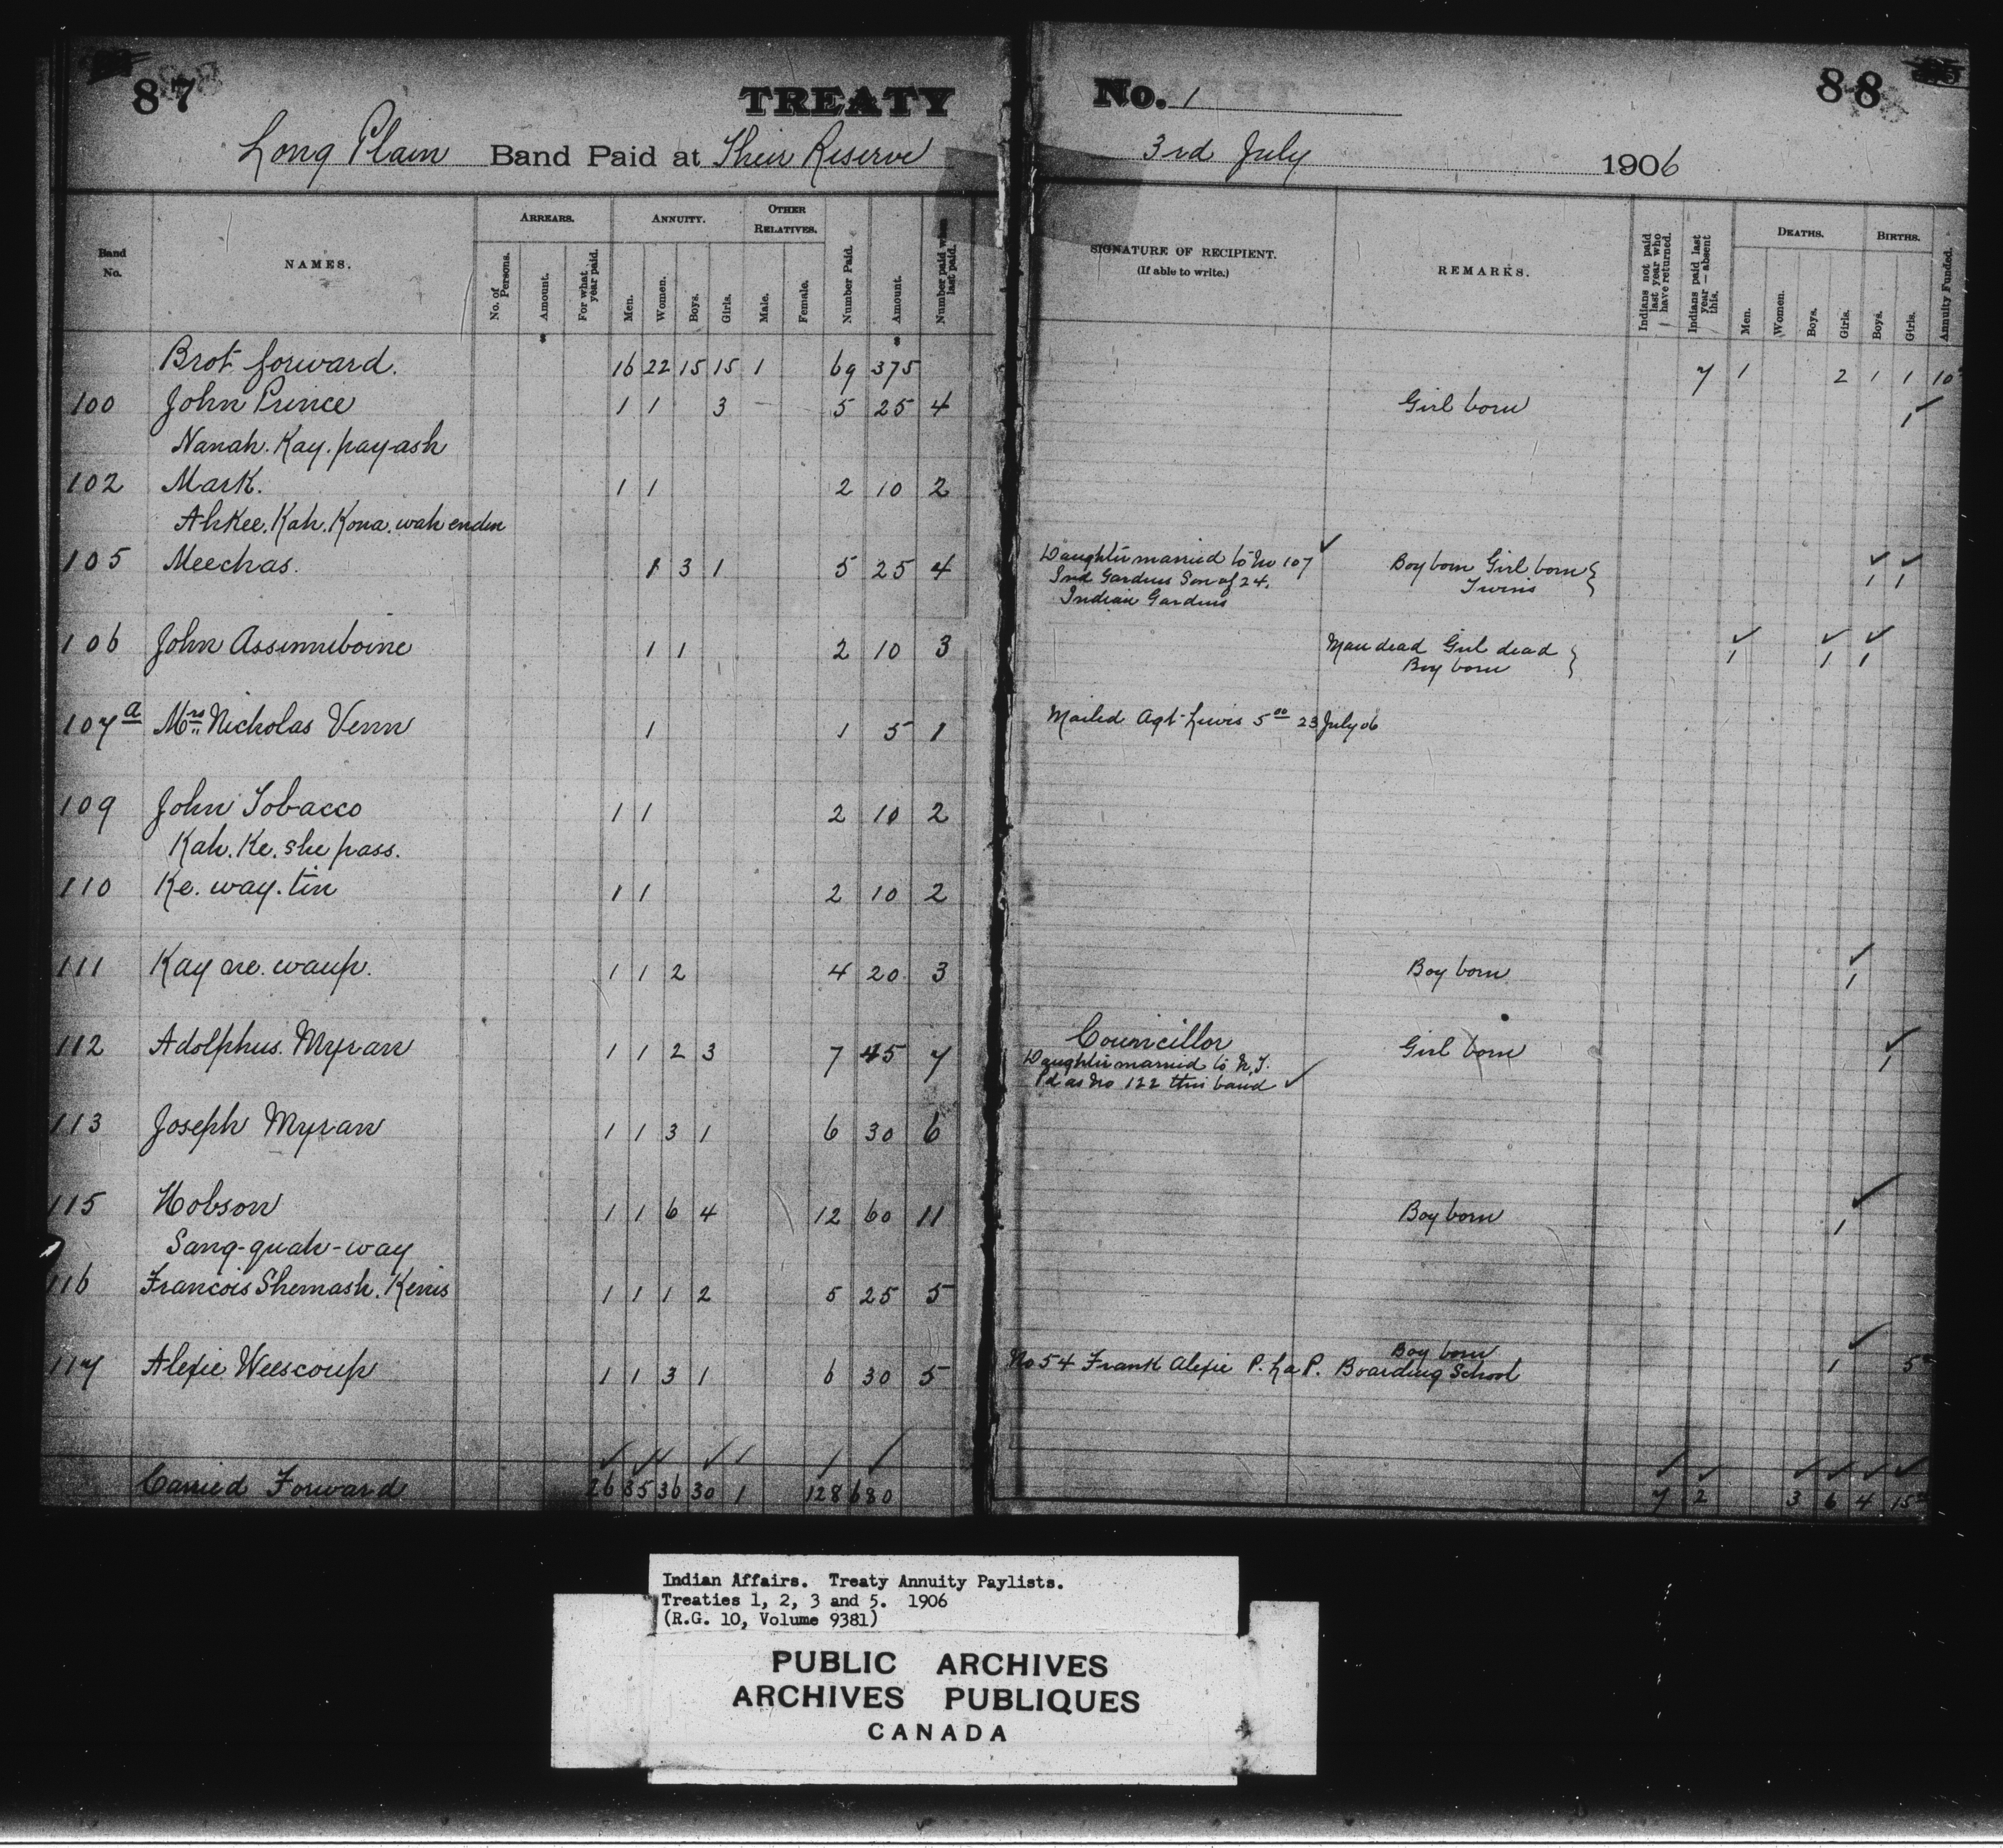 87
TREATY No. 1
88
Long Plain Band Paid at Their Reserve 3rd July 1906
Band No.
NAMES.
ARREARS.
No. of Persons.
Amount.
For what year paid.
ANNUITY.
Men.
Women.
Boys.
Girls.
OTHER RELATIVES.
Male.
Female.
Number Paid.
Amount.
Number paid when last paid.
SIGNATURE OF RECIPIENT.
(If able to write.)
REMARKS.
Indians not paid last year who have returned.
Indians paid last year — absent this.
DEATHS.
Men.
Women.
Boys.
Girls.
BIRTHS.
Boys.
Girls.
Annuity Funded.
$ $
Brot forward. 16 22 15 15 1 69 375 7 1 2 1 1 10
100 John Prince 1 1 3 — 5 25 4 Girl born 1
Nanah. Kay. pay-ash
102 Mark. 1 1 2 10 2
Ah Kee. Kah. Kona. wah enden
105 Meechas. 1 3 1 5 25 4 Daughter married to No 107 Boy born Girl born } 1 1
Ind Gardens Son of 24. Twins
Indian Gardens
106 John Assinniboine 1 1 2 10 3 Man dead Girl dead } 1 1 1
Boy born
107a Mrs Nicholas Venn 1 1 5 1 Mailed Agt Lewis 5 00 23 July 06
109 John Tobacco 1 1 2 10 2
Kah. Ke. she pass.
110 Ke. way. tin 1 1 2 10 2
111 Kay ne. waup. 1 1 2 4 20 3 Boy born 1
112 Adolphus. Myran 1 1 2 3 7 45 7 Councillor Girl born 1
Daughter married to N.T.
Pd as No 122 this band
113 Joseph Myran 1 1 3 1 6 30 6
115 Hobson 1 1 6 4 12 60 11 Boy born 1
Sang-quah-way
116 Francois Shemash. Kenis 1 1 1 2 5 25 5
117 Alexie Weescoup 1 1 3 1 6 30 5 Boy born 1 5
No 54 Frank Alexie P. La P. Boarding School
Carried Forward 26 35 36 30 1 128 680 7 2 3 6 4 15
Indian Affairs. Treaty Annuity Paylists.
Treaties 1, 2, 3 and 5. 1906
(R.G. 10, Volume 9381)
PUBLIC ARCHIVES
ARCHIVES PUBLIQUES
CANADA